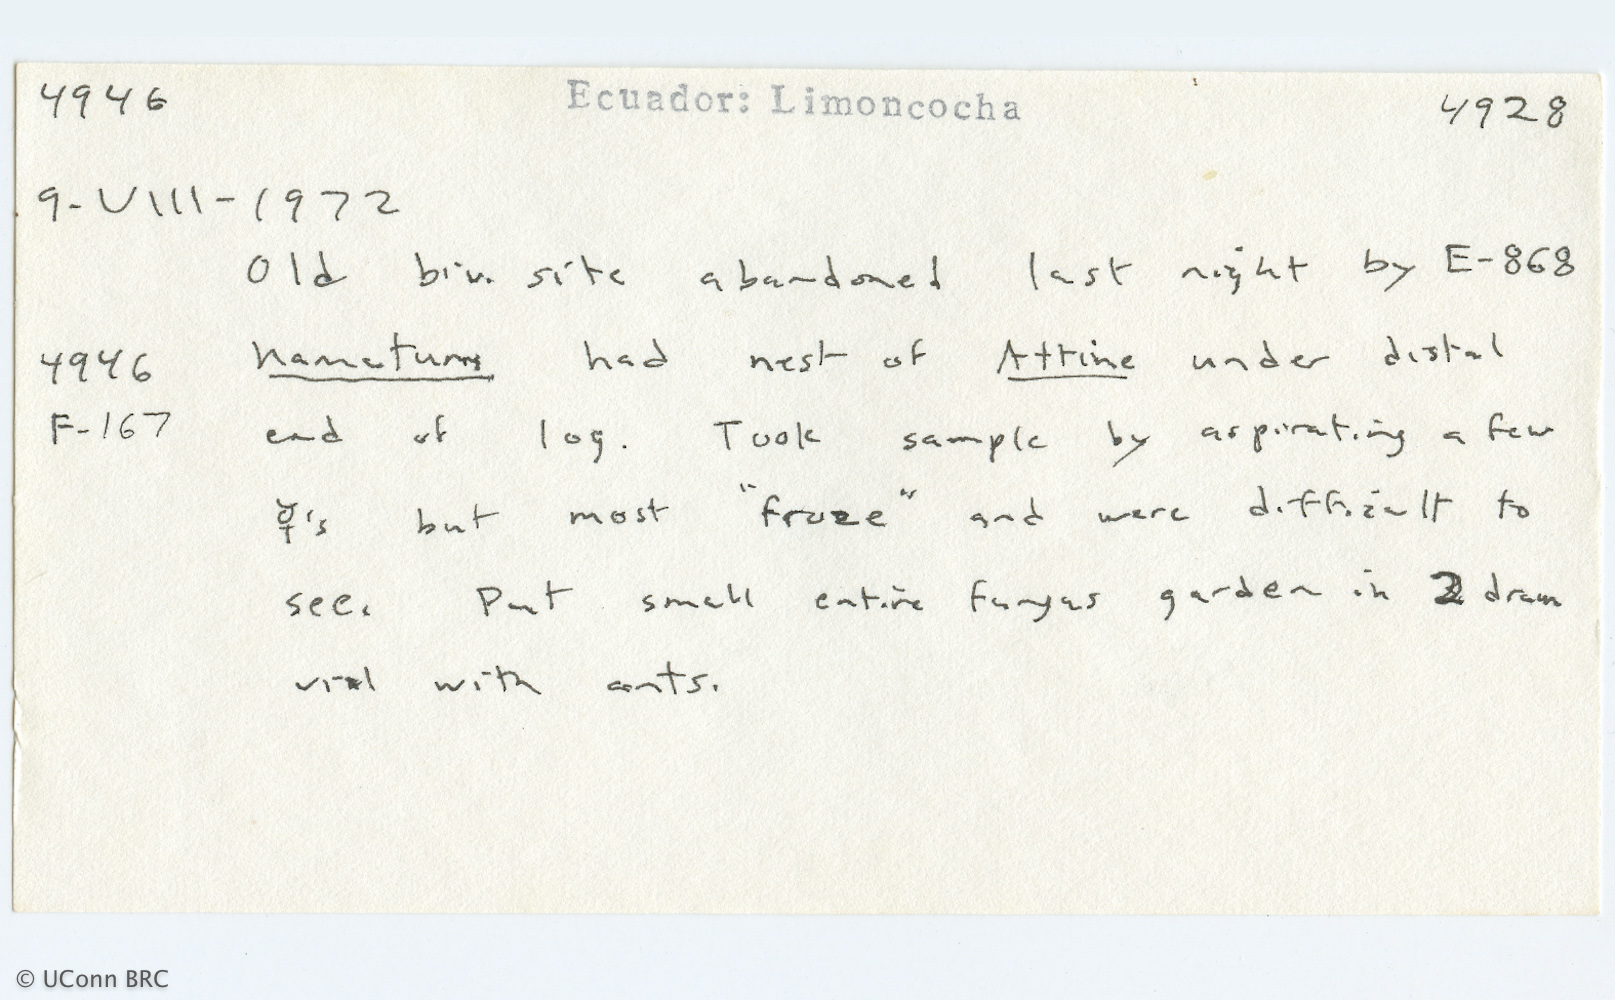 4946 Ecuador: Limoncocha 4928
9-VIII-1972
Old biv. site abandoned last night by E-868
4946 hamatum had nest of Attine under distal
F-167 end of log. Took sample by aspirating a few
☿'s but most "froze" and were difficult to
see. Put small entire fungus garden in 2 dram
vial with ants.
© UConn BRC